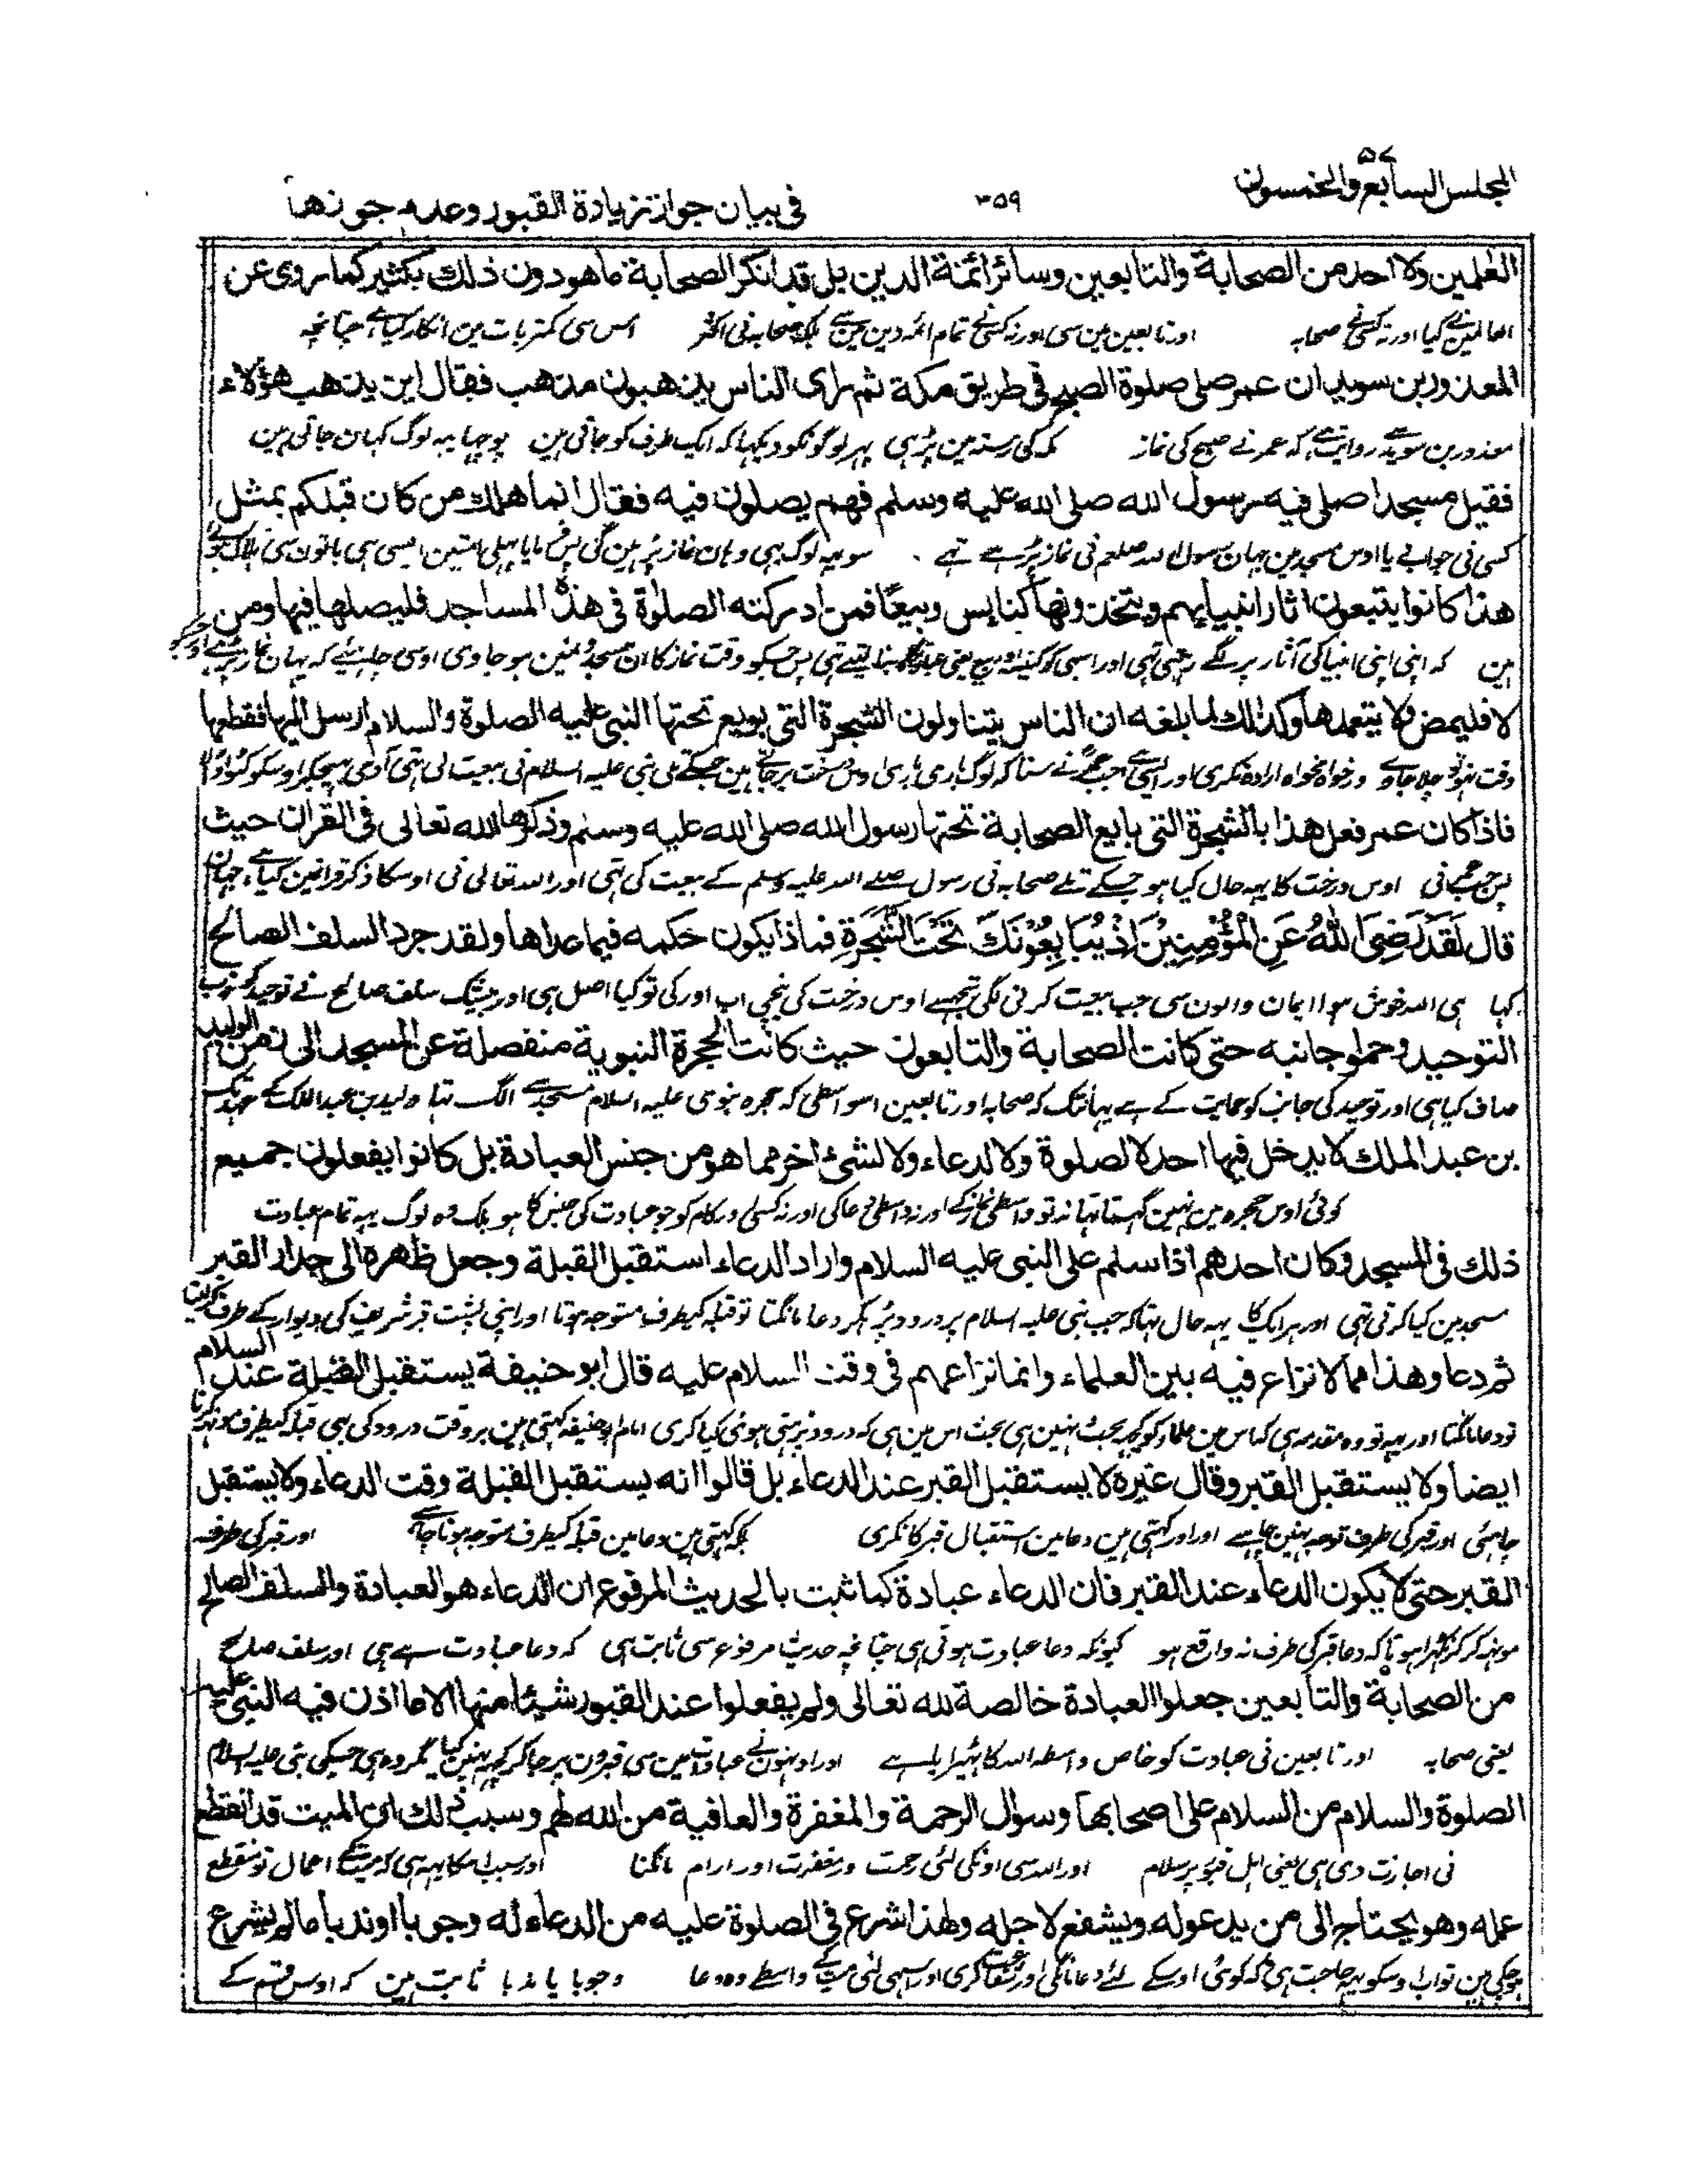 المجلس السابع والخمسون ۵۷
۳۵۹
فی بیان جواز زیارة القبور وعدم جوزها
العلمین ولا احد من الصحابة والتابعین وسائر ائمة الدین بل قد انکر الصحابة ماهو دون ذلك بکثیر کما روی عن
العالمین نے کیا اور نہ کسی نے صحابہ اور تابعین مین سی اور نہ کسی نے تمام ائمہ دین مین سے بلکہ صحابہ نی اکثر اس سی کمتر بات مین انکار کیا ہے چنانچہ
المعذور بن سوید ان عمر صلی صلوة الصبح فی طریق مکة ثم رای الناس یذهبون مذهب فقال این یذهب هؤلاء
معذور بن سوید سے روایت ہے کہ عمر نے صبح کی نماز مکہ کی رستہ مین پڑہی پہر لوگونکو دیکہا کہ ایک طرف کو جاتی ہین پوچہا یہہ لوگ کہان جاتی ہین
فقیل مسجدا صلی فیه رسول الله صلی الله علیه وسلم فهم یصلون فیه فقال انما هلك من کان قبلکم بمثل
کسی نی جواب دیا اوس مسجد مین جہان رسول اللہ صلعم نی نماز پڑہے تہے سو یہہ لوگ بہی وہان نماز پڑہین گی پس فرمایا پہلی امتین ایسی ہی باتون سی ہلاک ہوئے
هذا کانوا یتبعون اثار انبیایهم ویتخذونها کنایس وبیعا فمن ادرکته الصلوة فی هذه المساجد فلیصلها فیها ومن
ہین کہ اپنی اپنی انبیا کی آثار پر لگے رہتی تہی اور اسہی کو کنیسہ و بیع یعنی عبادتگاہ بنا لیتے تہی پس جسکو وقت نماز کا ان مسجدونمین ہو جاوی اوسی چاہیئے کہ یہان نماز پڑہے اور جسکو
لا فلیمض ولا یتعمدها وکذلك لما بلغه ان الناس یتناولون الشجرة التی بویع تحتها النبی علیه الصلوة والسلام ارسل الیها فقطعها
وقت نہو تو چلا جاوے اور خواہ نخواہ ارادہ نکری اور ایسی ہے جب عمر نے سنا کہ لوگ باری باری اوس درخت پر جاتے ہین جسکے تلی نبی علیہ السلام نی بیعت لی تہی آدمی بہیجکر اوسکو کٹوا ڈالا
فاذا کان عمر فعل هذا بالشجرة التی بایع الصحابة تحتها رسول الله صلی الله علیه وسلم وذکرها الله تعالی فی القران حیث
پس جب عمر نی اوس درخت کا یہہ حال کیا ہو جسکے تلے صحابہ نی رسول صلے اللہ علیہ وسلم کے بیعت کی تہی اور اللہ تعالی نی اوسکا ذکر قرانمین کیا ہے جہان
قال لَقَدْ رَضِیَ اللّٰهُ عَنِ الْمُؤْمِنِیْنَ اِذْ یُبَایِعُوْنَكَ تَحْتَ الشَّجَرَةِ فماذا یکون حکمه فیما عداها ولقد جرد السلف الصالح
کہا ہی اللہ خوش ہوا ایمان والون سی جب بیعت کرنی لگی تجہسے اوس درخت کی نیچی اب اور کی تو کیا اصل ہی اور بیشک سلف صالح نے توحید کو خوب
التوحید وحموا جانبه حتی کانت الصحابة والتابعون حیث کانت الحجرة النبویة منفصلة عن المسجد الی زمن الولید
صاف کیا ہی اور توحید کی جانب کو حمایت کے ہے یہانتک کہ صحابہ اور تابعین اسواسطی کہ حجرہ نبوی علیہ السلام مسجد سے الگ تہا ولید بن عبد الملک کے عہد تک
بن عبد الملك لا یدخل فیها احد لا لصلوة ولا لدعاء ولا لشیٔ اخر مما هو من جنس العبادة بل کانوا یفعلون جمیع
کوئی اوس حجرہ مین نہین گہستا تہا نہ تو واسطی نماز کے اور نہ واسطی دعا کی اور نہ کسی اور کام کو جو عبادت کی جنس کا ہو بلکہ وہ لوگ یہہ تمام عبادت
ذلك فی المسجد وکان احدهم اذا سلم علی النبی علیه السلام واراد الدعاء استقبل القبلة وجعل ظهره الی جدار القبر
مسجد مین کیا کرتی تہی اور ہر ایک کا یہہ حال تہا کہ جب نبی علیہ السلام پر درود پڑہکر دعا مانگتا تو قبلہ کیطرف متوجہ ہوتا اور اپنی پشت قبر شریف کی دیوار کے طرف کرلیتا
ثم دعا وهذا مما لا نزاع فیه بین العلماء وانما نزاعهم فی وقت السلام علیه قال ابو حنیفة یستقبل القبلة عند السلام
تو دعا مانگتا اور یہہ تو وہ مقدمہ ہی کہ اس مین علماء کو کچہہ بحث نہین ہی بحث اس مین ہی کہ درود پڑہتی ہوئی کیا کری امام ابو حنیفہ کہتی ہین ہر وقت درود کی بہی قبلہ کیطرف مونہہ کرنا
ایضا ولا یستقبل القبر وقال غیره لا یستقبل القبر عند الدعاء بل قالوا انه یستقبل القبلة وقت الدعاء ولا یستقبل
چاہئی اور قبر کی طرف توجہ نہین چاہے اور اور کہتی ہین دعا مین استقبال قبر کا نکری بلکہ کہتی ہین دعا مین قبلہ کیطرف متوجہ ہونا چاہے اور قبر کی طرف
القبر حتی لا یکون الدعاء عند القبر فان الدعاء عبادة کما ثبت بالحدیث المرفوع ان الدعاء هو العبادة والسلف الصالح
مونہہ کرکر نہ کہڑا ہو تاکہ دعا قبر کی طرف نہ واقع ہو کیونکہ دعا عبادت ہوتی ہی چنانچہ حدیث مرفوع سی ثابت ہی کہ دعا عبادت ہے ہی اور سلف صالح
من الصحابة والتابعین جعلوا العبادة خالصة لله تعالی ولم یفعلوا عند القبور شیئا منها الا ما اذن فیه النبی علیه
یعنی صحابہ اور تابعین نی عبادت کو خاص واسطہ اللہ کا ٹہیرایا ہے اور اونہون نے عبادت مین سی قبرون پر جاکر کچہہ نہین کیا مگر وہ ہی جسکی نبی علیہ السلام
الصلوة والسلام من السلام علی اصحابها وسوال الرحمة والمغفرة والعافیة من الله لهم وسبب ذلك ان المیت قد انقطع
نی اجازت دی ہی یعنی اہل قبور پر سلام اور اللہ سی اونکی لئی رحمت و مغفرت اور ارام مانگنا اور سبب اسکا یہہ ہی کہ میت کے اعمال تو منقطع
عمله وهو یحتاج الی من یدعو له ویشفع لاجله ولهذا شرع فی الصلوة علیه من الدعاء له وجوبا او ندبا ما لم یشرع
ہوچکی ہین تو اب اوسکو یہہ حاجت ہی کہ کوئی اوسکے لئے دعا مانگی اور شفاعت کری اور اسہی لئی میت کے واسطے وہ دعا وجوبا یا ندبا ثابت ہین کہ اوس قسم کے